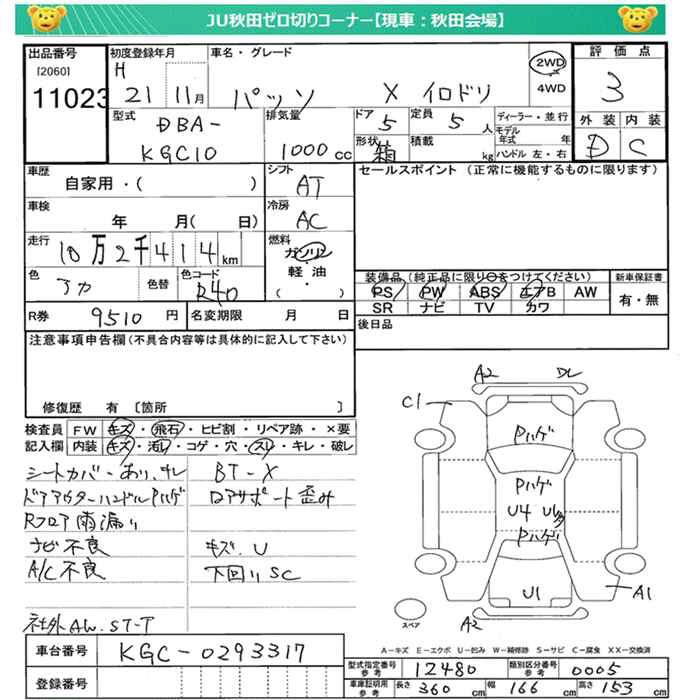 JU秋田ゼロ切りコーナー【現車：秋田会場】
出品番号
[2060]
11023
初度登録年月
H
21 11月
車名・グレード
パッソ X イロドリ
2WD
4WD
評価点
3
外装 内装
D C
型式
DBA-
KGC10
排気量
1000 cc
ドア
5
定員
5 人
形状
箱
積載
kg
ディーラー・並行
モデル年式 年
ハンドル 左・右
車歴
自家用・( )
シフト
AT
セールスポイント (正常に機能するものに限ります)
車検
年 月( 日)
冷房
AC
走行
10万2千414km
燃料
ガソリン
軽・油
( )
色
アカ
色替
色コード
R40
装備品(純正品に限り○をつけてください)
PS PW ABS エアB AW
SR ナビ TV カワ
新車保証書
有・無
R券
9510 円
名変期限 月 日
後日品
注意事項申告欄(不具合内容等は具体的に記入して下さい)
修復歴 有 〔箇所 〕
検査員記入欄
FW キズ・飛石・ヒビ割・リペア跡・×要
内装 キズ・汚レ・コゲ・穴・スレ・キレ・破レ
シートカバーあり、キレ
ドアアウターハンドルPハゲ
Rフロア雨漏り
ナビ不良
A/C不良
社外AW. ST-T
BT-X
ロアサポート歪み
キズ、U
下回りSC
A2 DL
C1
Pハゲ
Pハゲ
U4 U多
Pハゲ
U1
A1
A2
スペア
A－キズ E－エクボ U－凹み W－補修跡 S－サビ C－腐食 XX－交換済
車台番号
KGC-0293317
登録番号
型式指定番号
参考
12480
類別区分番号
参考
0005
車庫証明用
参考
長さ 360 cm
幅 166 cm
高さ 153 cm